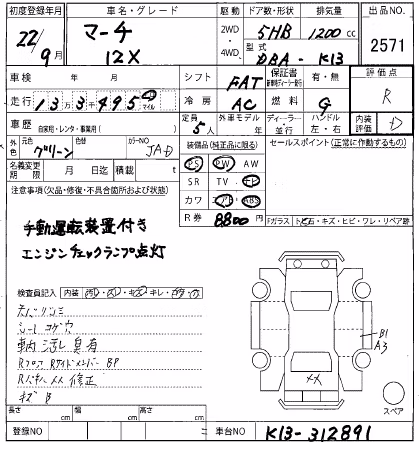 初度登録年月 車名・グレード 駆動 ドア数・形状 排気量 出品NO.
22/9月 マーチ 12X 2WD 4WD 5HB 1200cc 2571
型式 DBA-K13
車検 年 月 シフト FAT 保証書 有・無 評価点
走行 13万3千495 マイル 冷房 AC 燃料 G R
車歴 自家用・レンタ・事業用( ) 定員 5人 外車モデル 年 ディーラー・並行 ハンドル 左・右 内装評価 D
外色 元色 グリーン 色替 カラーNO JAD 装備品(純正品に限る) セールスポイント(正常に作動するもの)
名義変更期限 月 日 積載 t PS PW AW
注意事項(欠品・修復・不具合箇所および状態) SR TV ナビ
カワ エアB ABS
R券 8800円 Fガラス トビ石・キズ・ヒビ・ワレ・リペア跡
手動運転装置付き
エンジンチェックランプ点灯
検査員記入 内装
シートコゲ穴
車内 汚し 臭有
Rフロア RサイドメンバーBP
修正
キズB
B1
A3
XX
スペア
長さ cm 幅 cm 高さ cm
登録NO 車台NO K13-312891